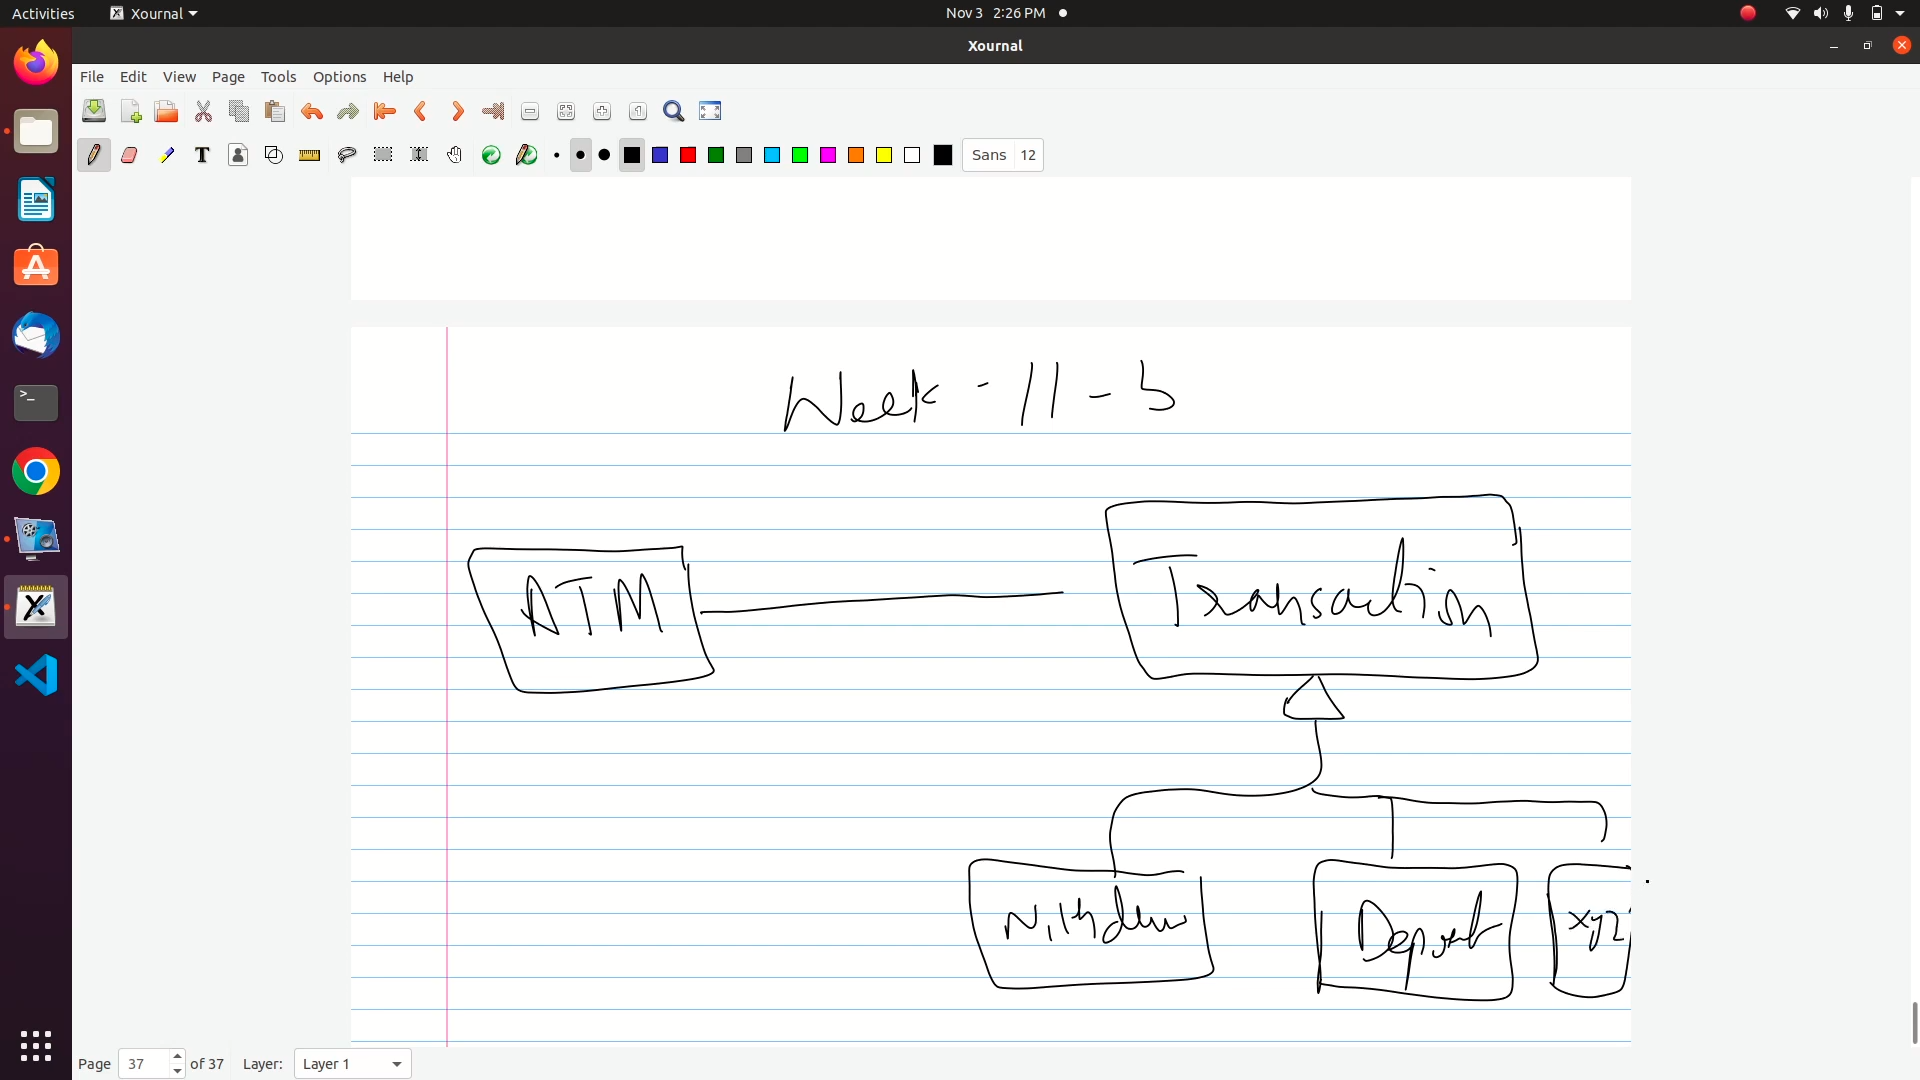 Activities
Xournal
Nov 3 2:26 PM
Xournal
File Edit View Page Tools Options Help
Sans 12
Week - 11 - 3
ATM
Transaction
Withdraw
Deposit
xyz
Page 37 of 37 Layer: Layer 1